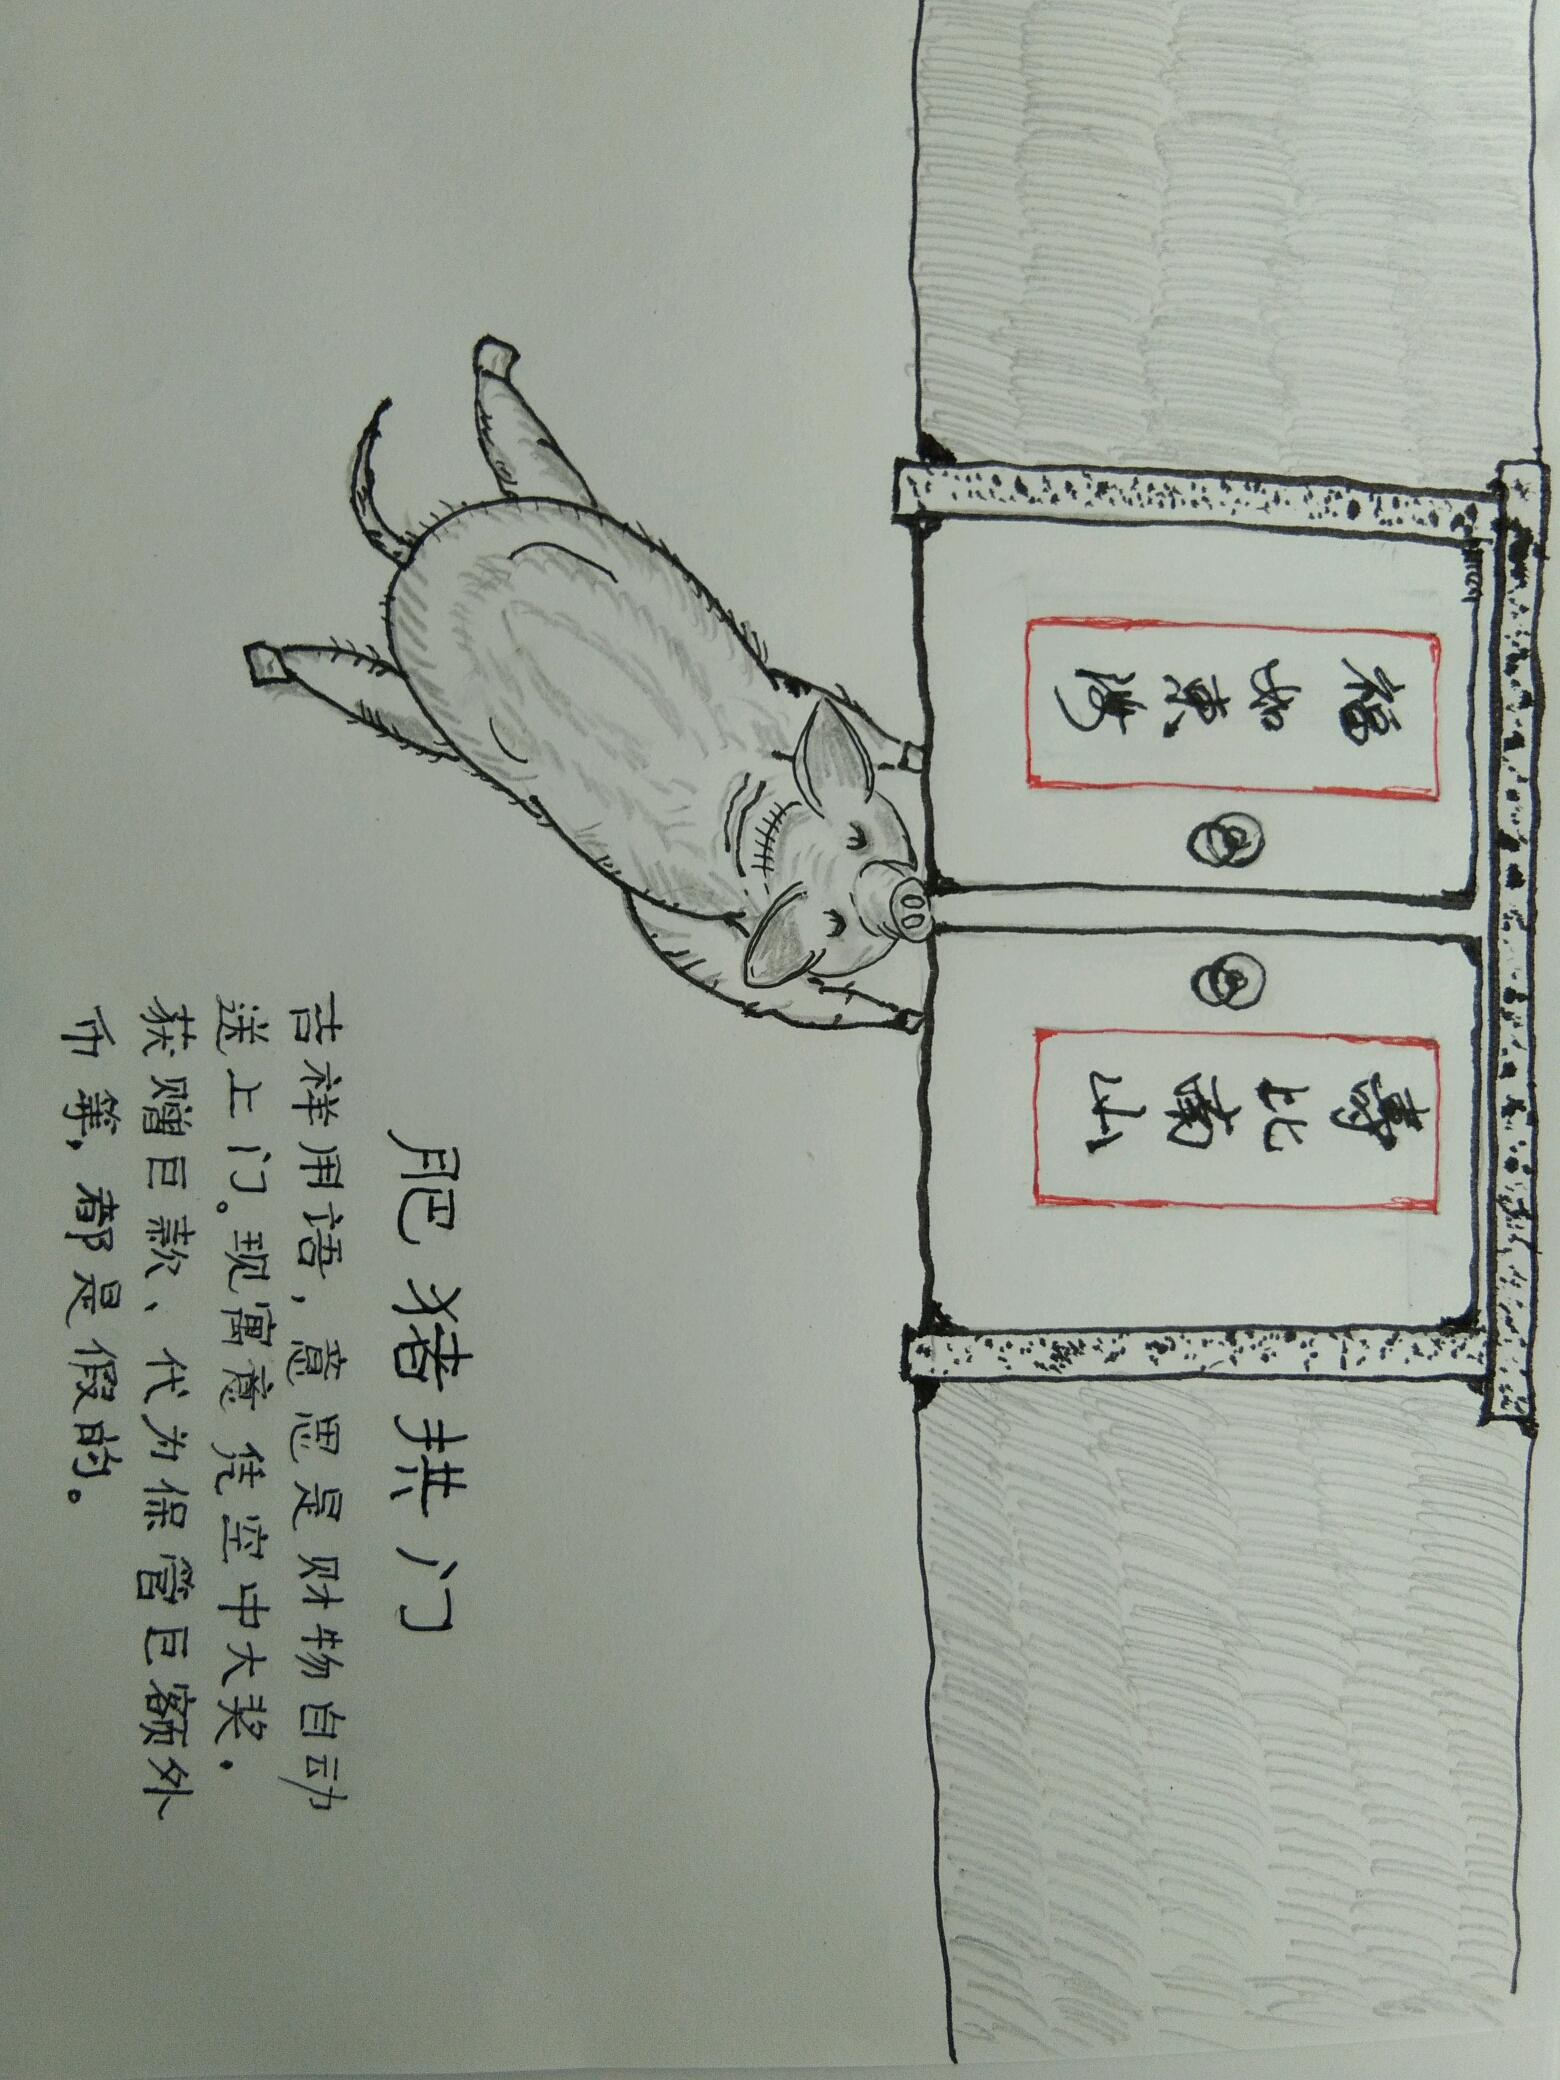 福如東海
壽比南山
肥猪拱门
吉祥用语，意思是财物自动
送上门。现寓意凭空中大奖，
获赠巨款、代为保管巨额外
币等，都是假的。